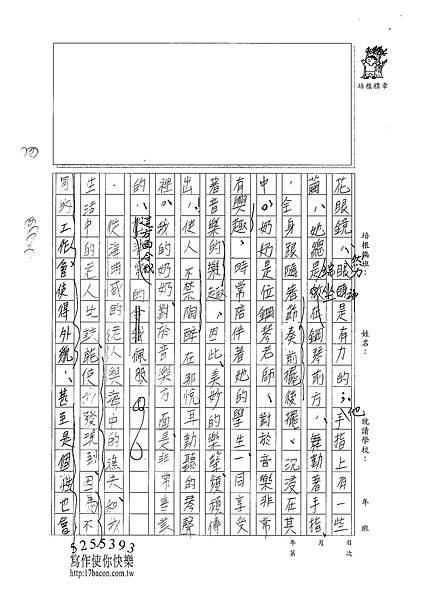 培根標章
培根興班：
姓名：
就讀學校：
年 班
年 月 日
第 次
花眼鏡，眼睛是有力的，手指上有一些
繭，她總是端坐在鋼琴前方，舞動著手指
，全身跟隨著節奏前擺後擺、沉浸在其
中。奶奶是位鋼琴老師，對於音樂非常
有興趣，時常陪伴著她的學生一同享受
著音的樂趣，因此，美妙的樂聲頻頻傳
出，使人不禁陶醉在那悅耳動聽的琴聲
裡。我的奶奶對於音樂方面是非常喜歡
的，這方面令我佩服
從海明威的老人與海中的漁夫和我
生活中的老人比較能使我發現到因為不
同的工作會使得外貌，甚至是個性也會
5255393
寫作使你快樂
http://17bacon.com.tw